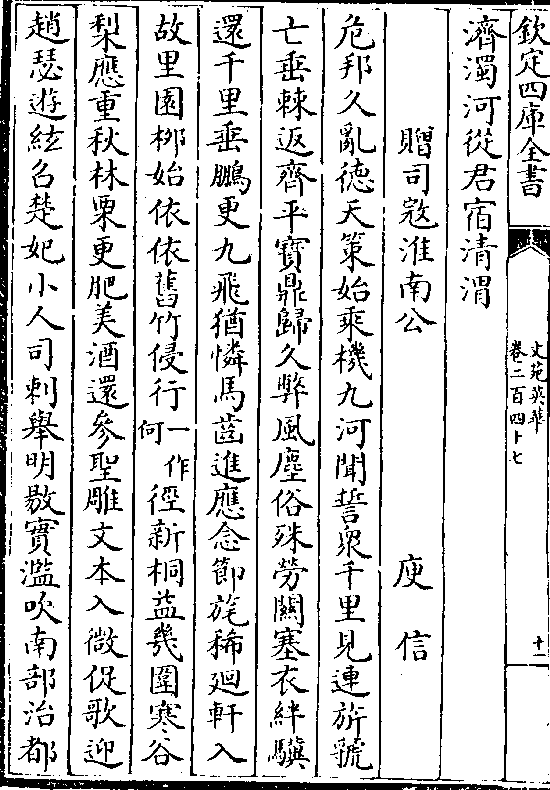 欽定四庫全書
文苑英華
卷二百四十七
十
濟濁河從君宿清渭
贈司寇淮南公　庾信
危邦久亂徳天策始乘機九河聞誓衆千里見連旂虢
亡垂棘返齊平寳鼎歸久弊風塵俗殊勞關塞衣絆驥
還千里垂鵬更九飛猶憐馬齒進應念節旄稀廻軒入
故里園栁始依依舊竹侵行一作何徑新桐益幾圍寒谷
梨應重秋林栗更肥美酒還參聖雕文本入微促歌迎
趙瑟遊絃召楚妃小人司刺舉明敭實濫吹南部治都